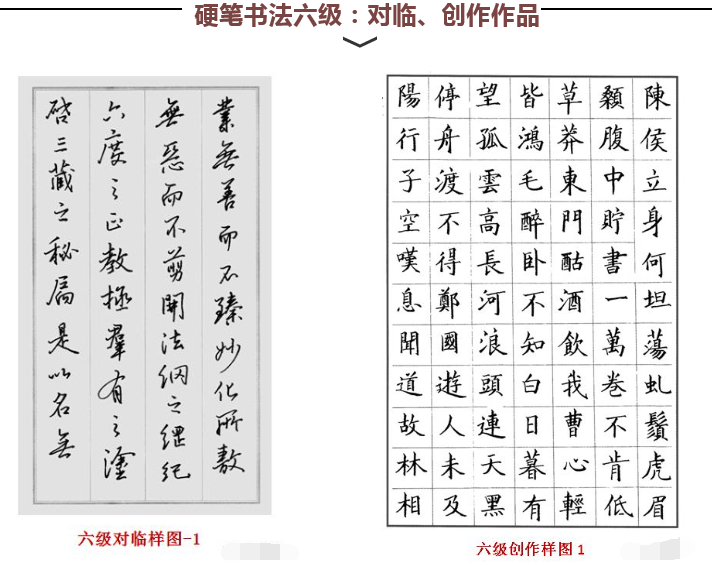 硬笔书法六级：对临、创作作品
業無善而不臻妙化所敷
無惡而不剪開法網之綱紀
六度之正教拯羣有之塗
啓三藏之秘扃是以名無
六级对临样图-1
陳侯立身何坦蕩虬鬚虎眉
顙腹中貯書一萬卷不肯低
草莽東門酤酒飲我曹心輕
皆鴻毛醉臥不知白日暮有
望孤雲高長河浪頭連天黑
停舟渡不得鄭國遊人未及
陽行子空嘆息聞道故林相
六级创作样图1